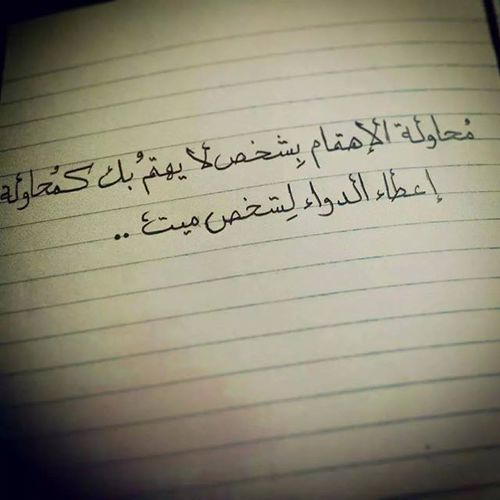 مُحاولة الإهتمام بِشخص لا يهتمُ بك كمُحاولة
إعطاء الدواء لِشخص ميت ..